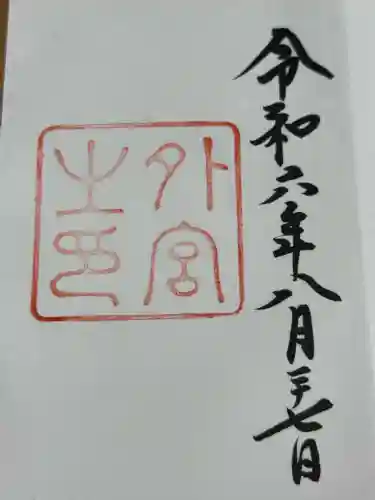 令和六年八月二十七日
外宮
之印